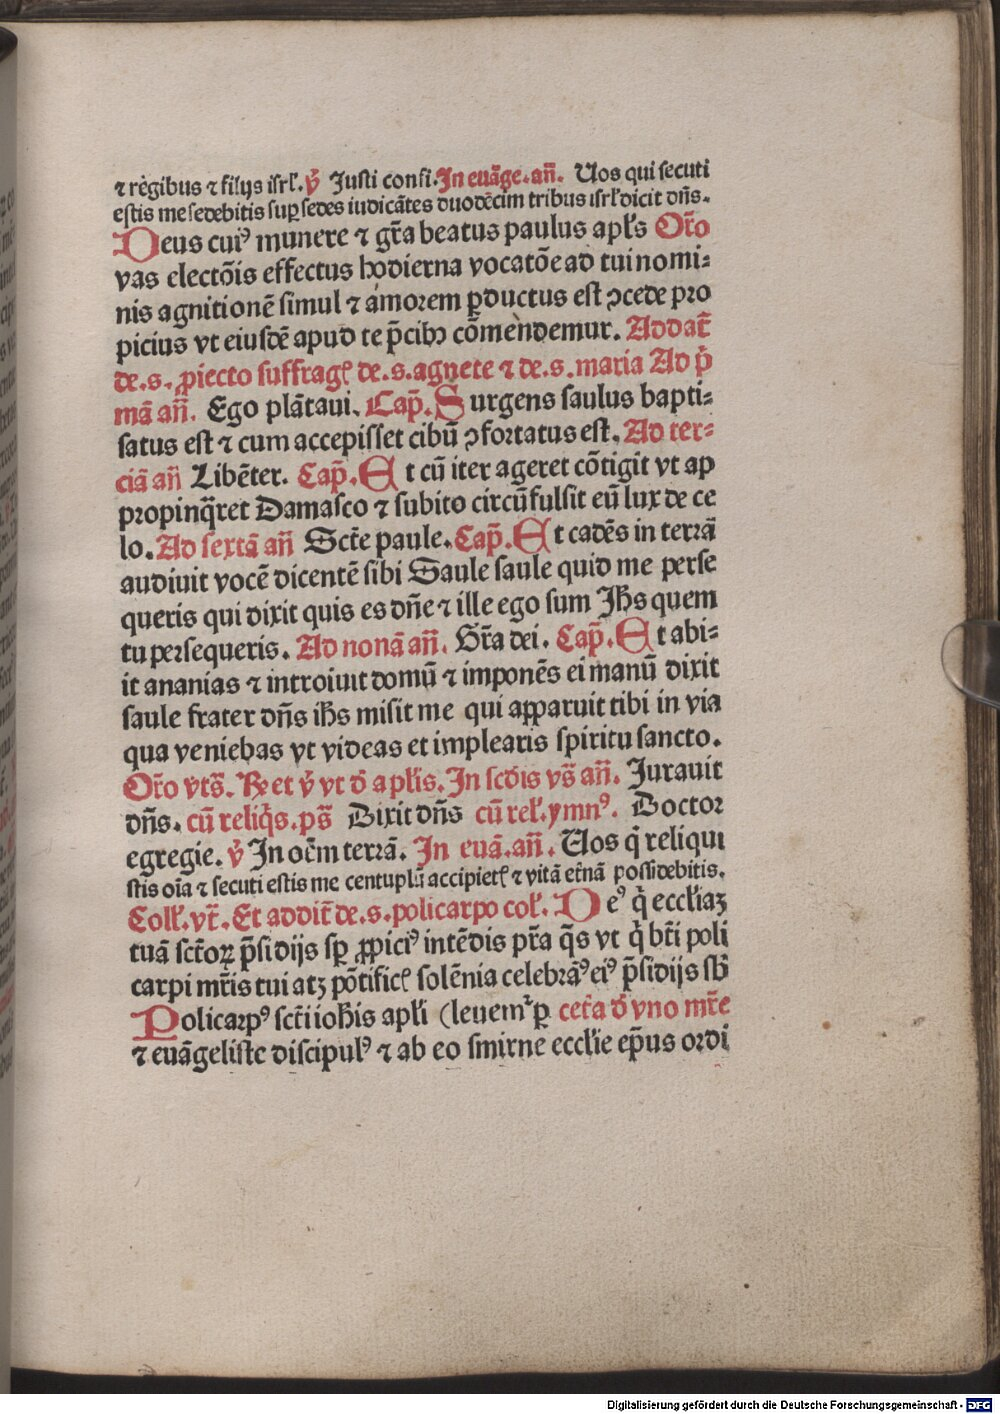 ⁊ regibus ⁊ filijs isrł. v̄ Justi confi. In euāge. an̄. Uos qui secuti
estis me sedebitis suꝑ sedes iudicātes duodēcim tribus isrł dicit dn̄s.
Deus cuiꝰ munere ⁊ gr̄a beatus paulus apl̄s Or̄o
vas electōis effectus hodierna vocatōe ad tui nomi⸗
nis agnitionē simul ⁊ amorem ꝑductus est ꝯcede pro
picius vt eiusdē apud te p̄cibꝫ cōmendemur. Ad dat̄
de .s. ꝓiecto suffragꝭ de .s. agnete ⁊ de .s. maria Ad p̄
mā an̄. Ego plātaui. Cap̄. Surgens saulus bapti⸗
satus est ⁊ cum accepisset cibū ꝯfortatus est. Ad ter⸗
ciā an̄ Libēter. Cap̄. Et cū iter ageret cōtigit vt ap
propinq̄ret Damasco ⁊ subito circūfulsit eū lux de ce
lo. Ad sextā an̄ Sct̄e paule. Cap̄. Et cadēs in terrā
audiuit vocē dicentē sibi Saule saule quid me perse
queris qui dixit quis es dn̄e ⁊ ille ego sum Jh̄s quem
tu persequeris. Ad nonā an̄. Gr̄a dei. Cap̄. Et abi⸗
it ananias ⁊ introiuit domū ⁊ imponēs ei manū dixit
saule frater dn̄s ih̄s misit me qui aꝑparuit tibi in via
qua veniebas vt videas et implearis spiritu sancto.
Or̄o vts̄. ℞ et v̄ vt d̄ apl̄is. In scd̄is vs̄ an̄. Jurauit
dn̄s. cū reliq̄s. ps̄ Dixit dn̄s cū rel̄. ymnꝰ. Doctor
egregie. v̄ In oēm terrā. In euā. an̄. Uos q̄ reliqui
stis oīa ⁊ secuti estis me centuplū accipietꝭ ⁊ vitā et̄nā possidebitis.
Coll̄. vt̄. Et addit̄ de .s. policarpo col̄. Deꝰ q̄ eccl̄iaꝫ
tuā sct̄oꝝ p̄sidijs sꝑ ꝓpiciꝰ intēdis pr̄a q̄s vt q̄ bt̄i poli
carpi mr̄is tui atꝫ pōtificꝭ solēnia celebrāꝰ eiꝰ p̄sidijs sb̄
Policarpꝰ sct̄i ioh̄is apl̄i (leuemᷣ ꝑ cet̄a d̄ vno mr̄e
⁊ euāgeliste discipulꝰ ⁊ ab eo smirne eccl̄ie ep̄us ordi
Digitalisierung gefördert durch die Deutsche Forschungsgemeinschaft - DFG